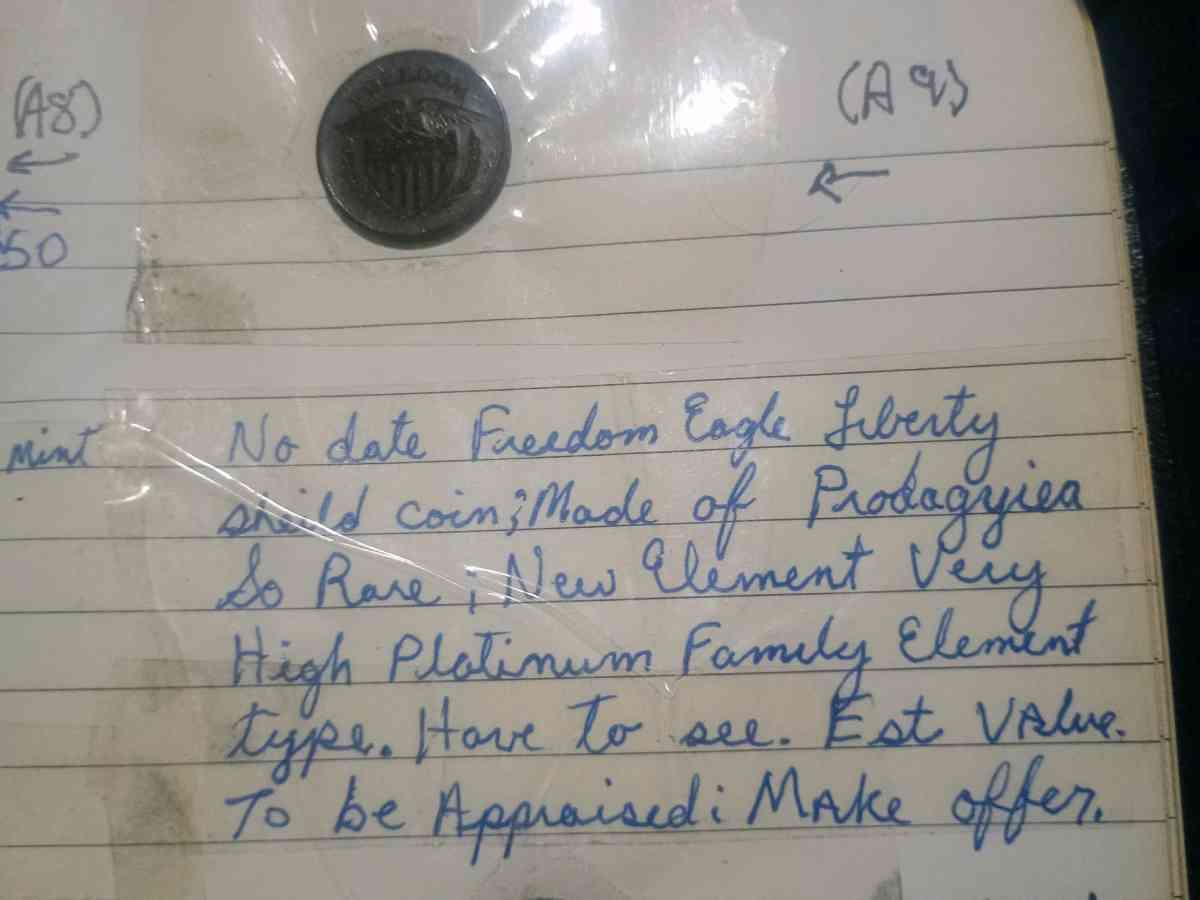 FREEDOM
(A8)
(A9)
50
Mint
No date Freedom Eagle Liberty
sheild coin; Made of Prodagyiea
So Rare; New Element Very
High Platinum Family Element
type. Have To see. Est Value.
To be Appraised: Make offer.